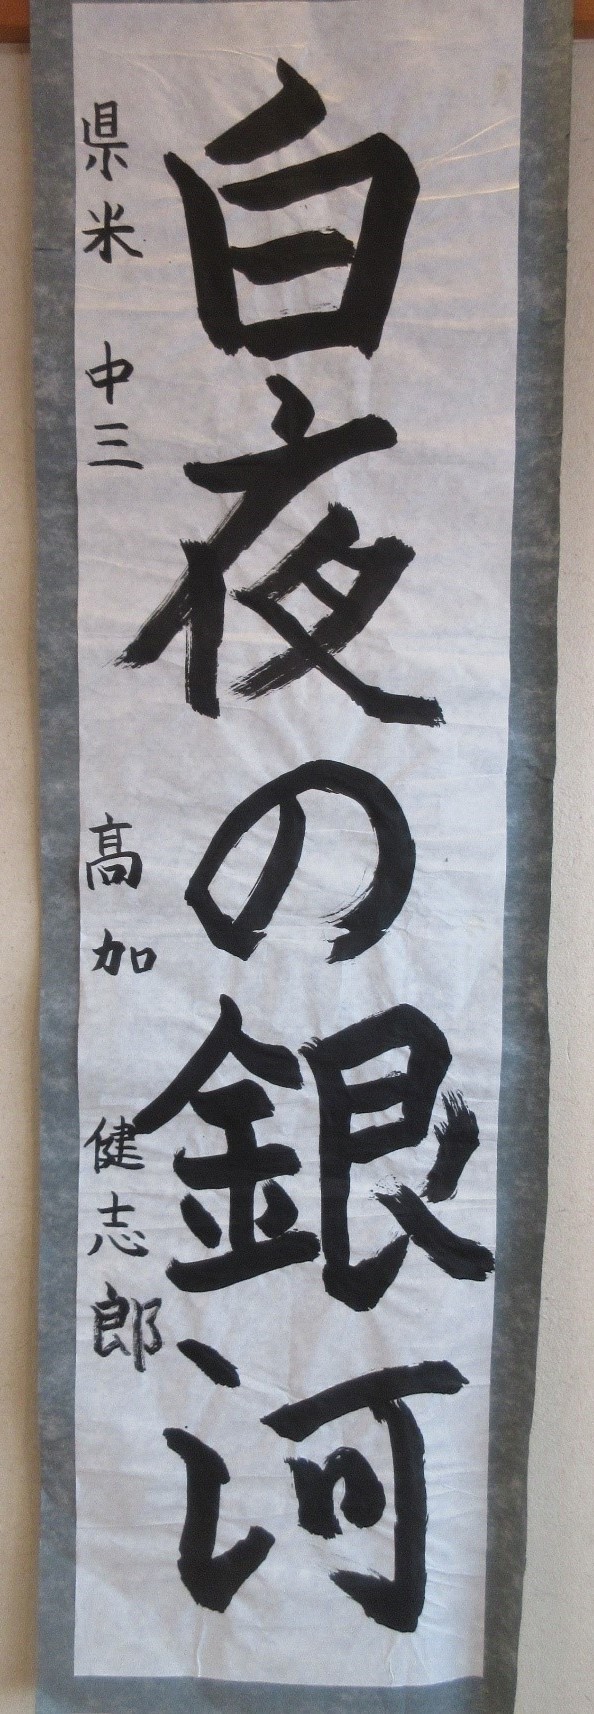 白夜の銀河
県米 中三 髙加 健志郎